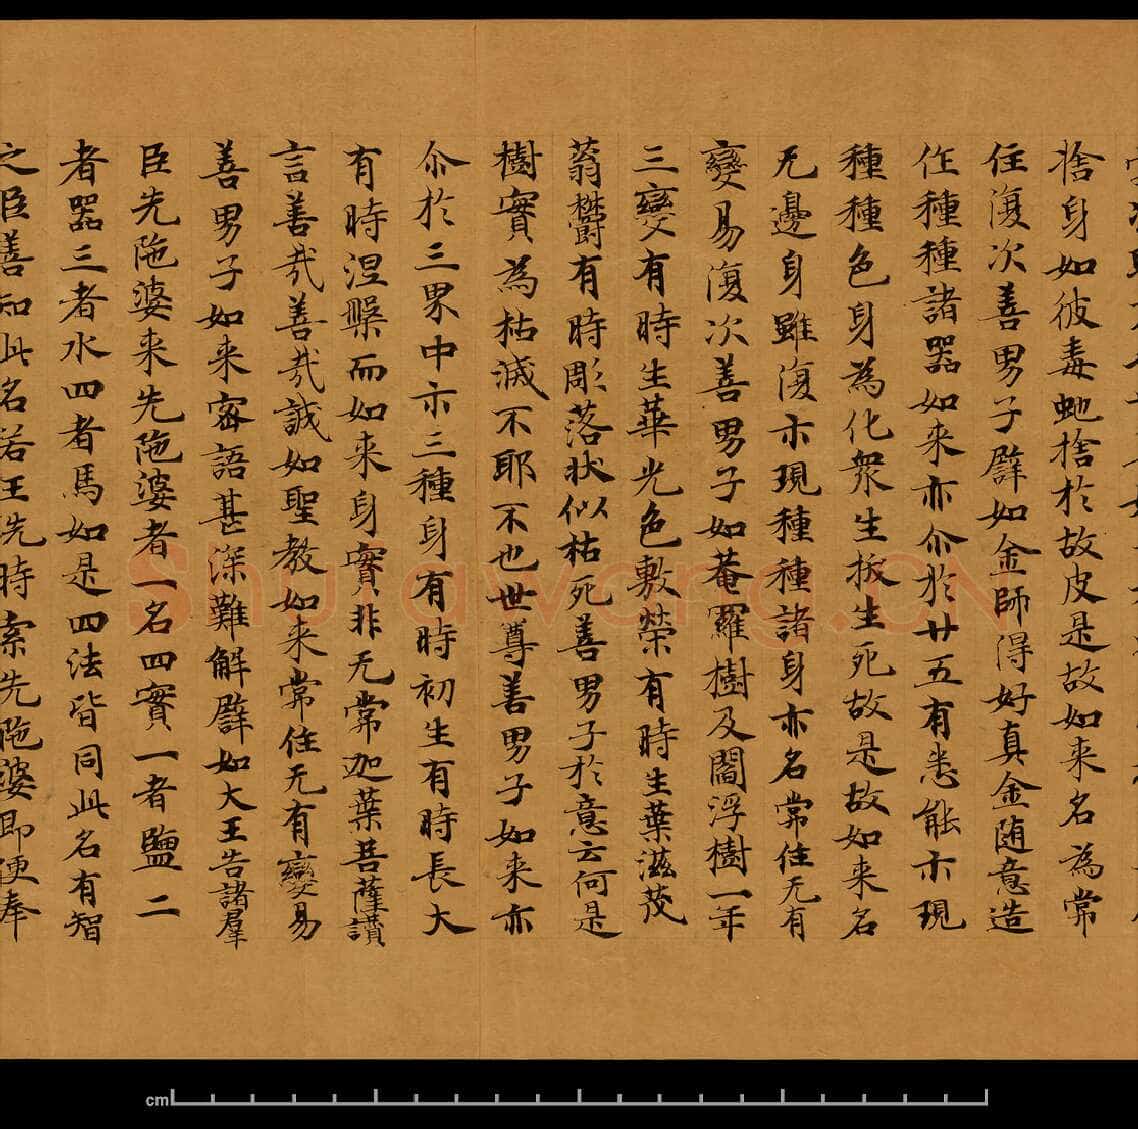 捨身如彼毒虵捨於故皮是故如来名為常
住復次善男子譬如金師得好真金随意造
作種種諸器如来亦尒於廿五有悉能示現
種種色身為化衆生拔生死故是故如来名
无邊身雖復示現種種諸身亦名常住无有
變易復次善男子如菴羅樹及閻浮樹一年
三變有時生華光色敷榮有時生葉滋茂
蓊欝有時彫落狀似枯死善男子於意云何是
樹實為枯滅不耶不也世尊善男子如来亦
尒於三界中示三種身有時初生有時長大
有時涅槃而如来身實非无常迦葉菩薩讃
言善哉善哉誠如聖教如来常住无有變易
善男子如来密語甚深難解譬如大王告諸羣
臣先陁婆来先陁婆者一名四實一者鹽二
者器三者水四者馬如是四法皆同此名有智
之臣善知此名若王洗時索先陁婆即便奉
cm